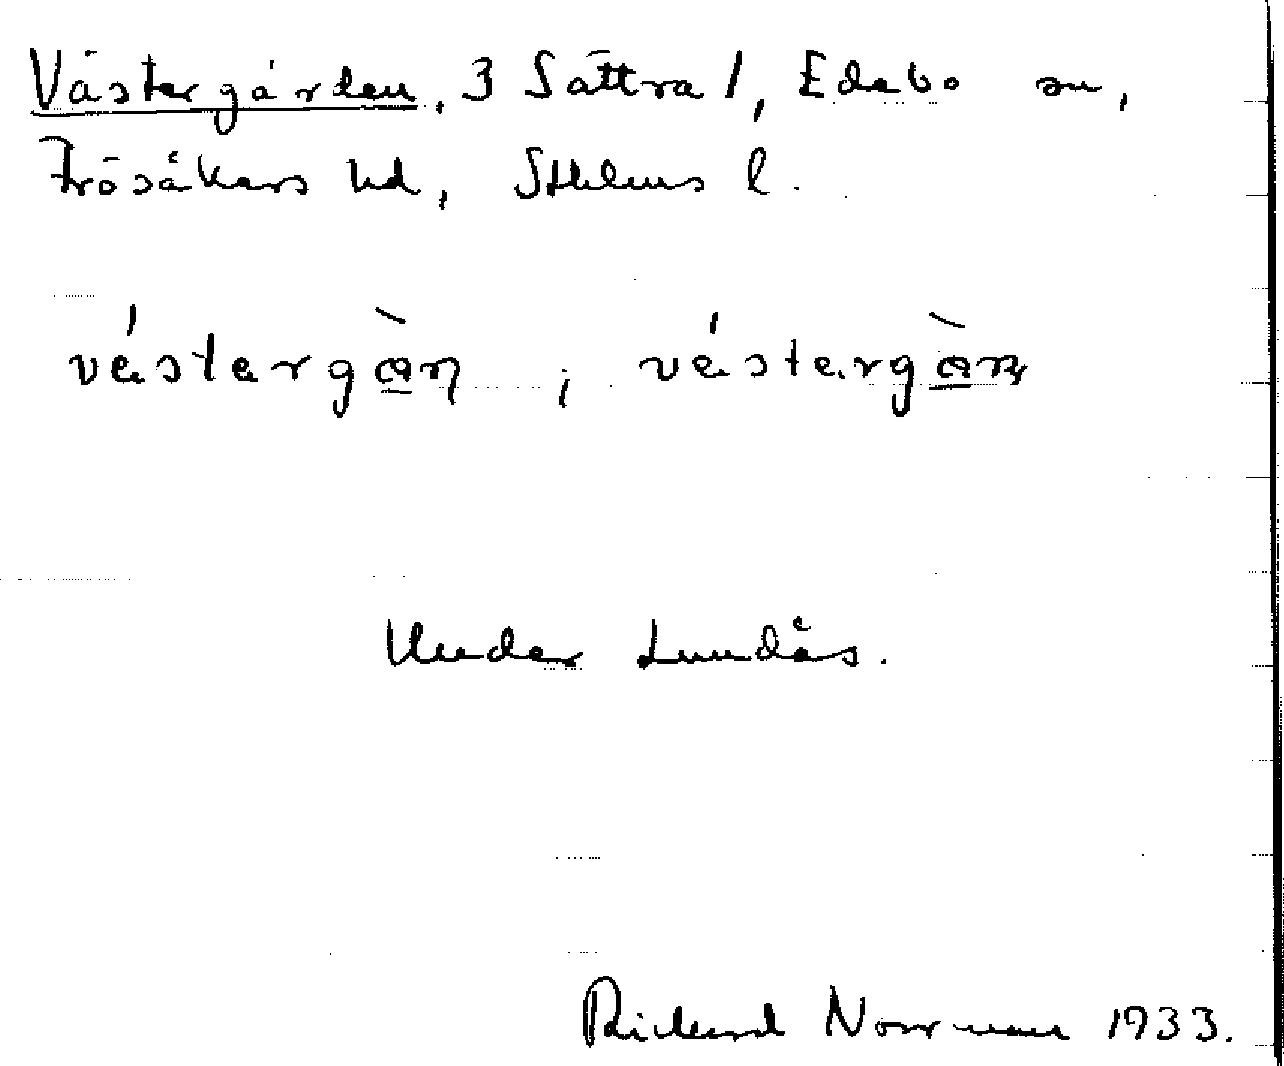 Västergården, 3 Sättra 1, Edebo sn,
Frösåkers hd, Sthlms l.
véstergàn ; véstergàn
Under Lundås.
Rickard Norrman 1933.